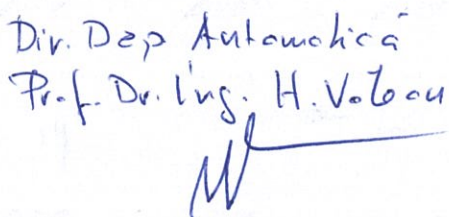 Dir. Dep Automatică
Prof. Dr. Ing. H. Vălean